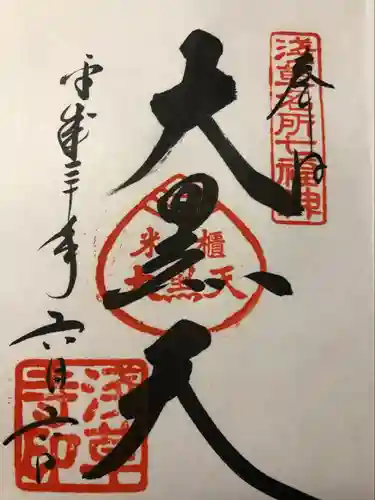 奉拝
淺草名所七福神
大黒天
米櫃
大黒天
平成三十年
六月
日
淺草
寺印